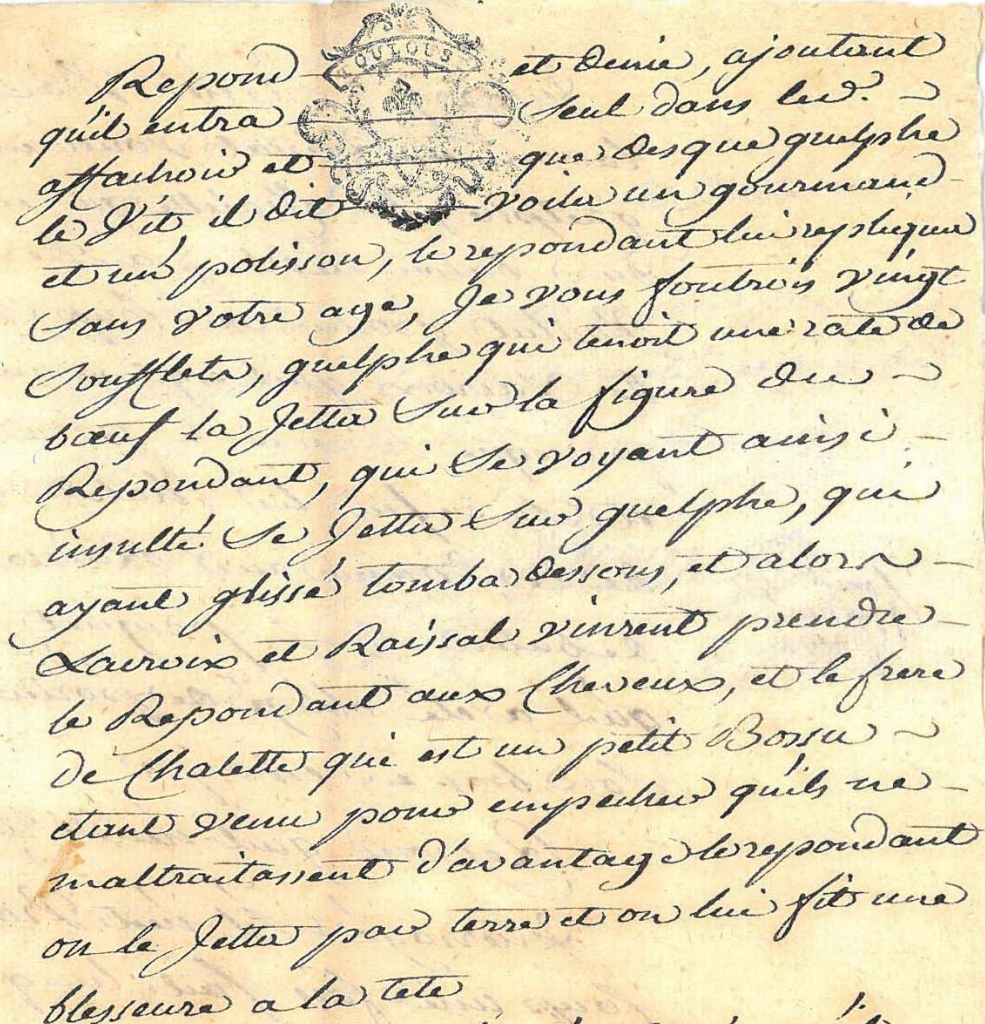 TOULOUS
Repond et denie, ajoutant
qu'il entra seul dans led.
affachoir et que des que guelphe
le vit, il dit voila un gourmand
et un polisson, le repondant lui repliqua
sans votre age, Je vous foutrois vingt
soufflets, guelphe qui tenoit une rate de
bœuf la Jetta sur la figure du
Repondant, qui se voyant ainsi
insulté se Jetta sur guelphe, qui
ayant glissé tomba dessous, et alors
Lacroix et Raissal vinrent prendre
le Repondant aux Cheveux, et le frere
de Chalette qui est un petit Bossu
etant venu pour empecher qu'ils ne
maltraitassent d'avantage le repondant
on le Jetta par terre et on lui fit une
blesseure a la tete